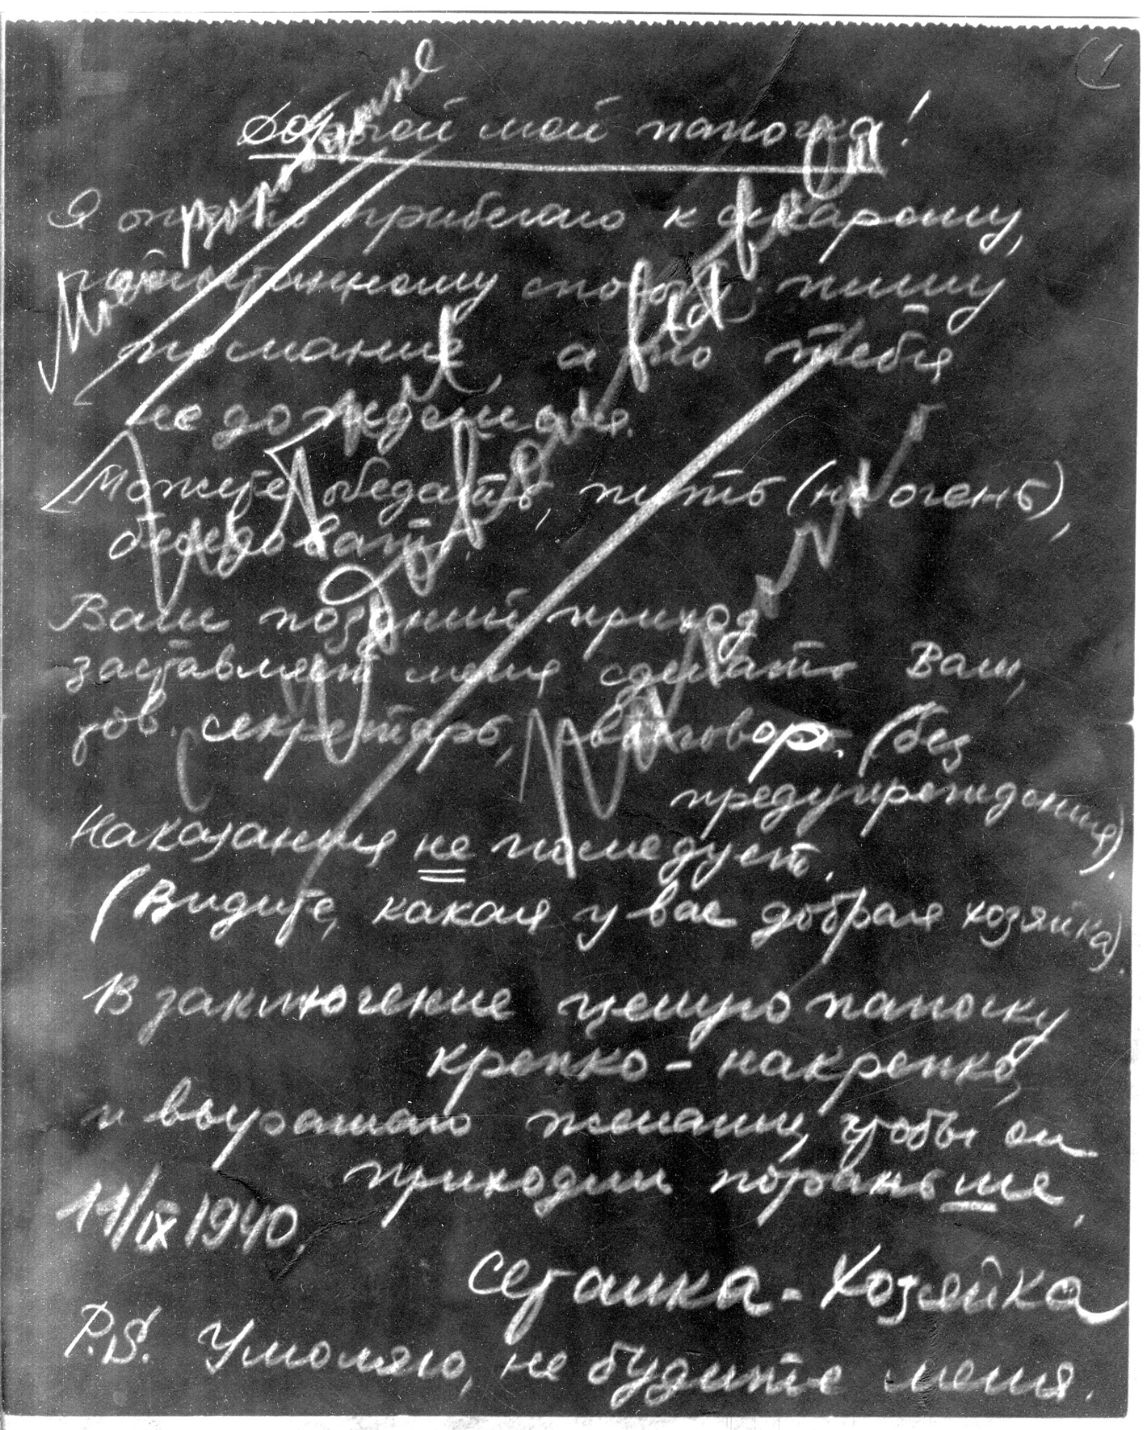 1
Дорогой мой папочка!
Я опять прибегаю к старому,
испытанному способу: пишу
послание, а то тебя
не дождешься.
Можете обедать, пить (не очень),
беседовать.
Ваш поздний приход
заставляет меня сделать Вам,
тов. секретарь, выговор. (без
предупреждения).
Наказания не последует.
(Видите, какая у вас добрая хозяйка).
В заключение целую папочку
крепко-накрепко,
и выражаю желание, чтобы он
приходил пораньше,
11/IX 1940.
Сетанка-Хозяйка
P.S. Умоляю, не будите меня.